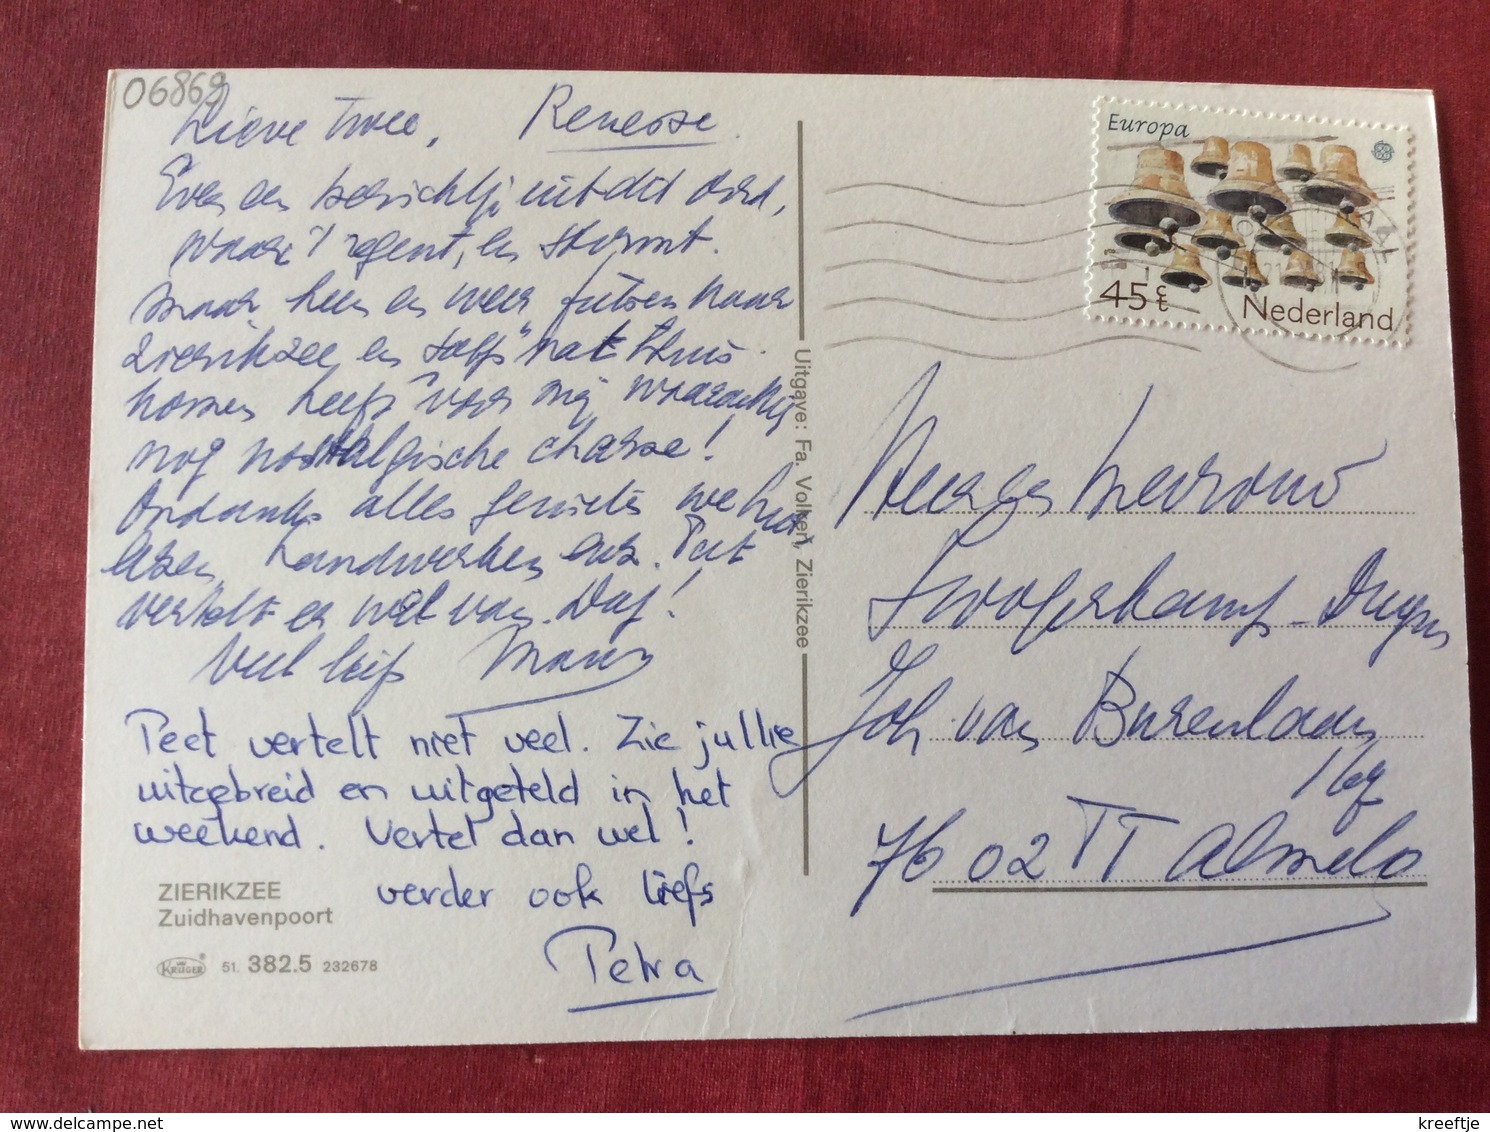 06869
Lieve Twee, Renesse.
Even een berichtje uit dit oord,
waar 't regent, en stormt.
Maar heen en weer fietsen naar
Zierikzee en zelfs "nat" thuis
komen heeft voor mij waarachtig
nog nostalgische charme!
Ondanks alles genieten we het
lezen, handwerken enz. Piet
vertelt er wel van. Dag!
Veel liefs
Peet vertelt niet veel. Zie jullie
uitgebreid en uitgeteld in het
weekend. Vertel dan wel!
verder ook liefs
Petra
ZIERIKZEE
Zuidhavenpoort
KRÜGER 51. 382.5 232678
Uitgave: Fa. Volkeri, Zierikzee
Europa
45 c
Nederland
Joh van Burenlaan
7602 TT Almelo
kreeftje